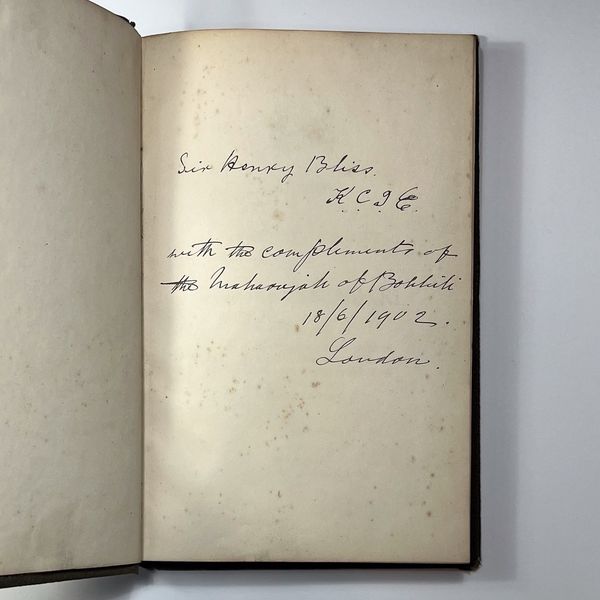 Sir Henry Bliss.
K. C. I. E.
with the compliments of
the Maharajah of Bobbili
18/6/1902.
London.